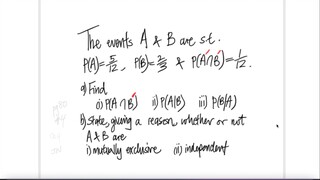 The events A & B are s.t.
P(A)=5/12, P(B)=2/3 & P(A'∩B')=1/12.
a) Find
i) P(A∩B') ii) P(A|B) iii) P(B|A)
b) state, giving a reason, whether or not
A & B are
i) mutually exclusive ii) independent